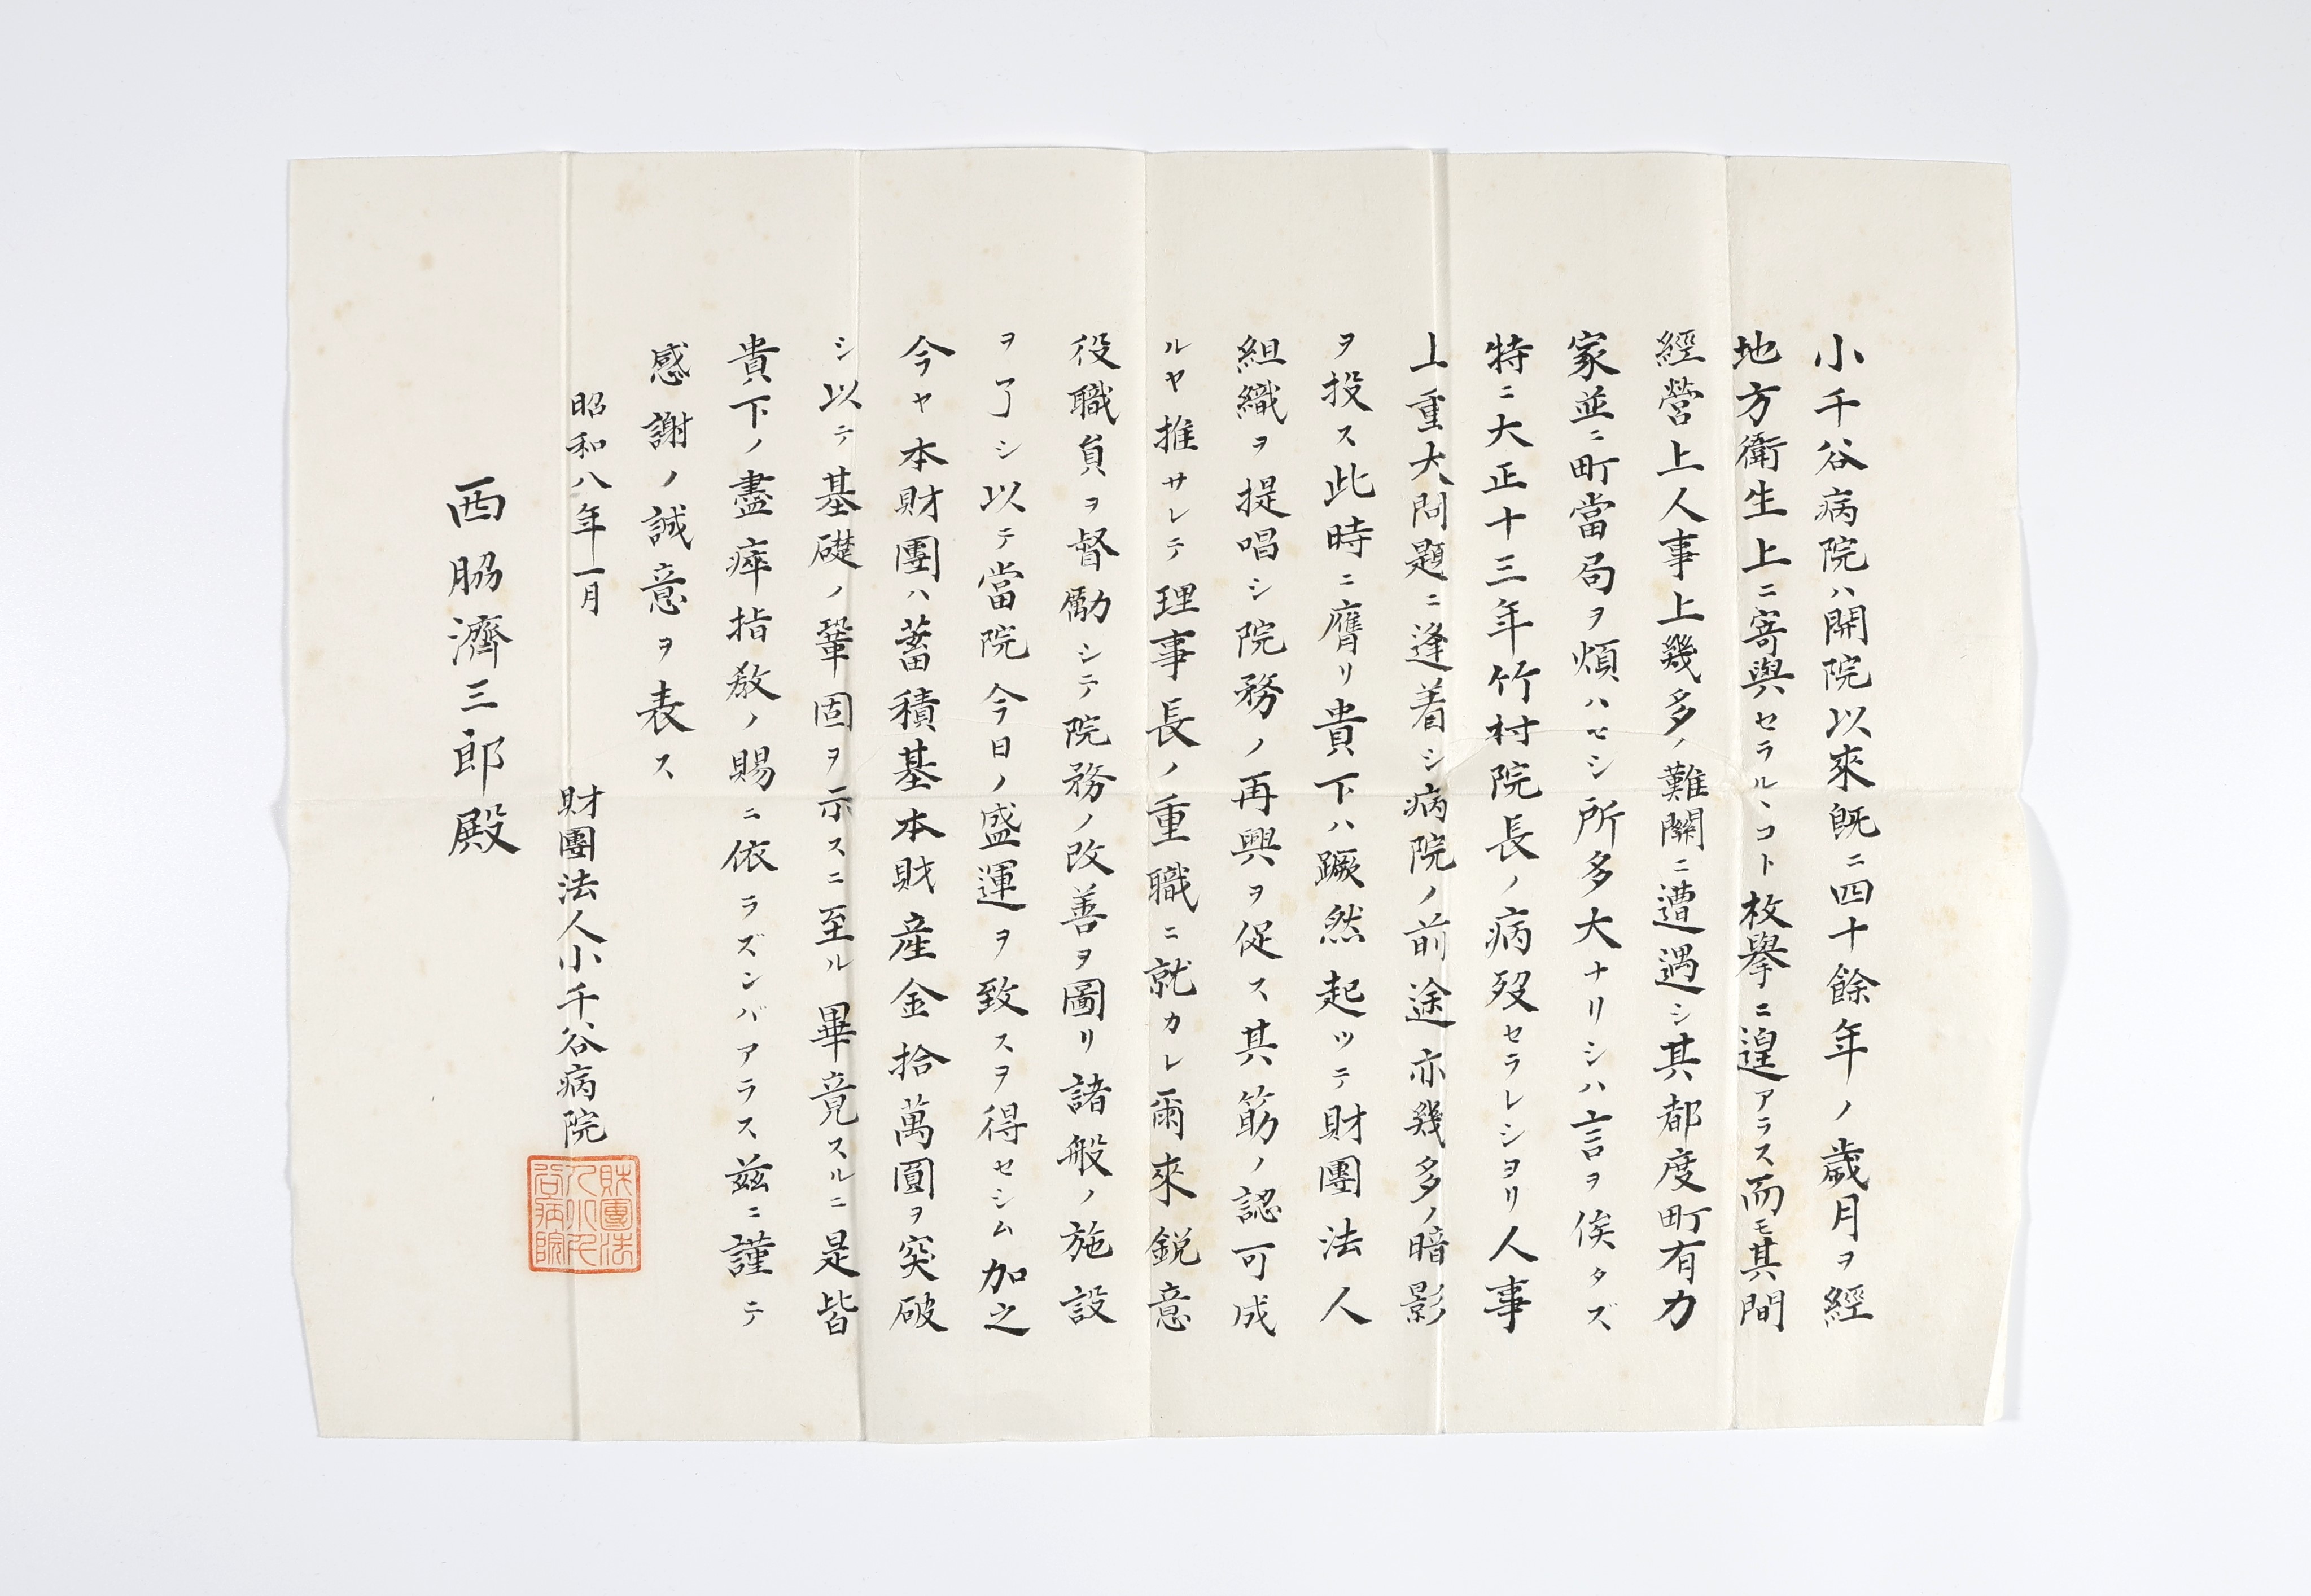 小千谷病院ハ開院以來既ニ四十餘年ノ歳月ヲ經
地方衞生上ニ寄與セラルヽコト枚擧ニ遑アラス而モ其間
經營上人事上幾多ノ難關ニ遭遇シ其都度町有力
家並ニ町當局ヲ煩ハセシ所多大ナリシハ言ヲ俟タズ
特ニ大正十三年竹村院長ノ病歿セラレシヨリ人事
上重大問題ニ逢着シ病院ノ前途亦幾多ノ暗影
ヲ投ス此時ニ膺リ貴下ハ蹶然起ツテ財團法人
組織ヲ提唱シ院務ノ再興ヲ促ス其筋ノ認可成
ルヤ推サレテ理事長ノ重職ニ就カレ爾來鋭意
役職員ヲ督勵シテ院務ノ改善ヲ圖リ諸般ノ施設
ヲ了シ以テ當院今日ノ盛運ヲ致スヲ得セシム加之
今ヤ本財團ハ蓄積基本財産金拾萬圓ヲ突破
シ以テ基礎ノ鞏固ヲ示スニ至ル畢竟スルニ是皆
貴下ノ盡瘁指敎ノ賜ニ依ラズンバアラス茲ニ謹テ
感謝ノ誠意ヲ表ス
昭和八年一月
財團法人小千谷病院
財團法人小千谷病院
西脇濟三郎殿